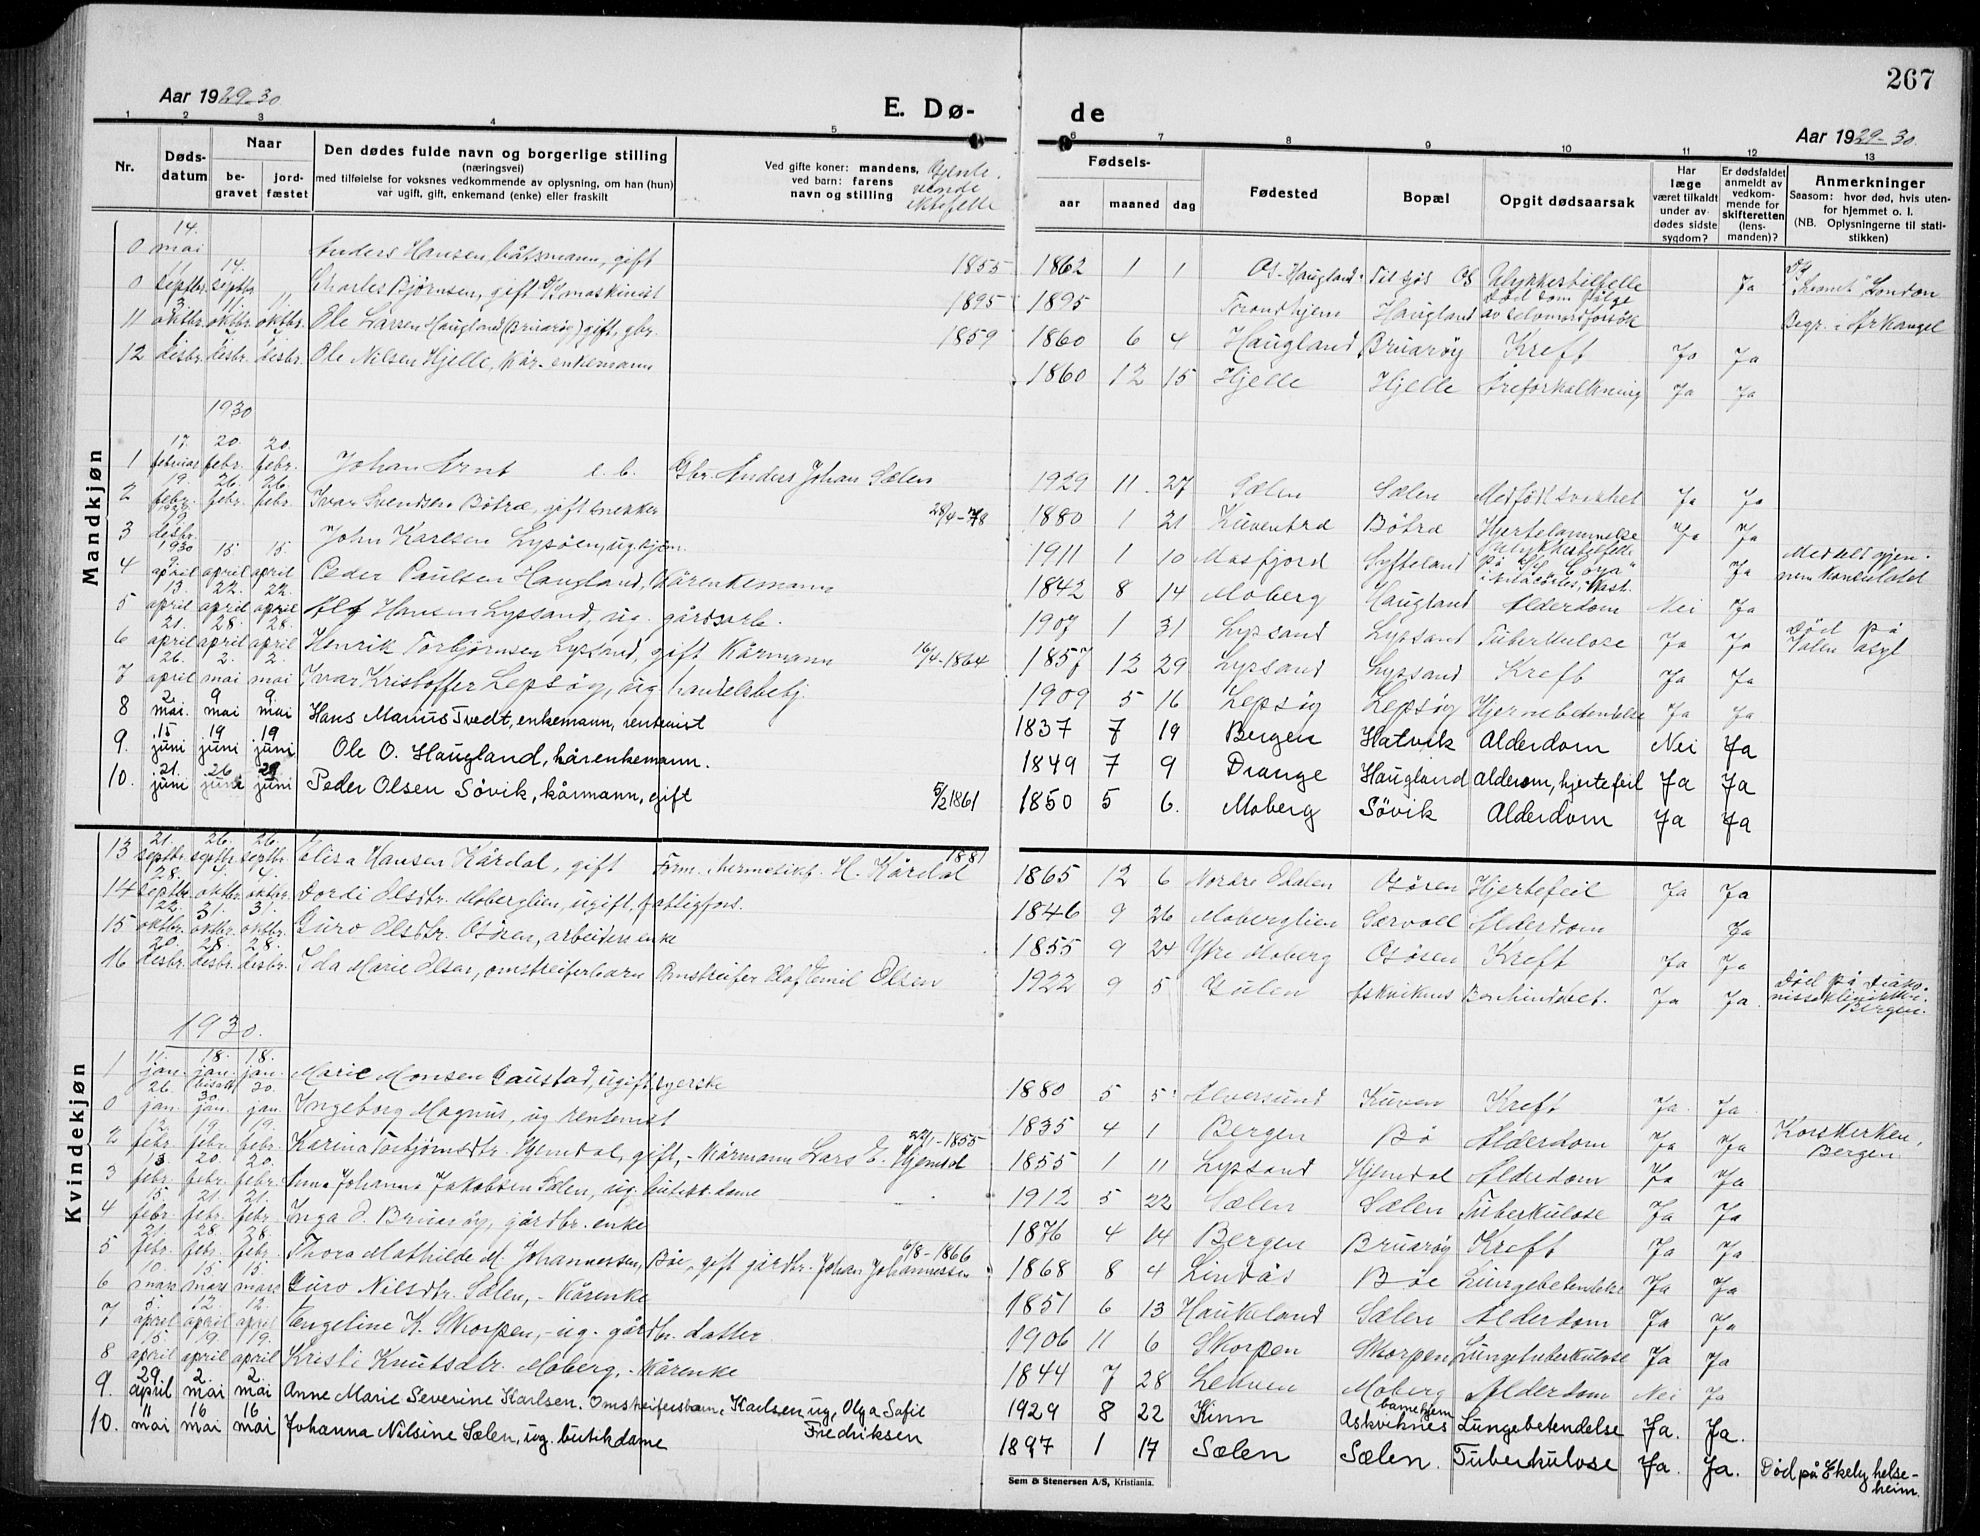 267
Aar 1929-30
E. Dø-
de
Aar 1929-30
1 2 3 4 5 6 7 8 9 10 11 12 13
Nr.
Døds-
datum
Naar
be-
gravet
jord-
fæstet
Den dødes fulde navn og borgerlige stilling
(næringsvei)
med tilføielse for voksnes vedkommende av oplysning, om han (hun)
var ugift, gift, enkemand (enke) eller fraskilt
Ved gifte koner: mandens,
ved barn: farens
navn og stilling
Gjenle-
vende
ektefelle
Fødsels-
aar maaned dag
Fødested
Bopæl
Opgit dødsaarsak
Har
læge
været tilkaldt
under av-
dødes sidste
sygdom?
Er dødsfaldet
anmeldt av
vedkom-
mende for
skifteretten
(lens-
manden)?
Anmerkninger
Saasom: hvor død, hvis uten-
for hjemmet o. l.
(NB. Oplysningerne til stati-
stikken)
Mandkjøn
0 14. mai Anders Hansen båtsmann, gift 1855 1862 1 1 Os-Haugland Til sjøs Os Ulykkestilfelle Ja London
0 septbr. 14. septbr. Charles Bjørnsen, gift maskinist 1895 1895 Trondhjem Haugland Død som følge av selvmordforsøk Begr. i Arkangel
11 3. oktbr. 11. oktbr. 11. oktbr. Ole Larsen Haugland (Bruarøy) gift, gbr. 1859 1860 6 4 Haugland Bruarøy Kreft Ja Ja
12 desbr. desbr. desbr. Ole Nilsen Hjelle, kår-enkemann 1860 12 15 Hjelle Hjelle Åreforkalkning Ja Ja
1930
1 17. februar 20. febr. 20. febr. Johan Arnt e. b. Gbr. Anders Johan Sælen 1929 11 27 Sælen Sælen Medfødt svakhet Ja Ja
2 19. febr. 26. febr. 26. febr. Ivar Svendsen Bøtræ, gift snekker 28/4-78 1880 1 21 Kuventræ Bøtræ Hjertelammelse Ja Ja
3 desbr. John Karlsen Lysøen, ug. sjøm. 1911 1 10 Masfjord Syfteland Ulykkestilfelle Ja Meddelt gjen-
nem Konsulatet
4 1930 9. april 15. april 15. april Peder Paulsen Haugland, kårenkemann 1842 8 14 Moberg Haugland Alderdom Nei Ja
5 13. april 22. april 22. april Alf Hansen Lyssand, ug. gårdsarb. 1907 1 31 Lyssand Lyssand Tuberkulose Ja Ja Død på
Valen Asyl
6 21. april 28. april 28. april Henrik Torbjørnsen Lyssand, gift kårmann 16/4-1864 1857 12 29 Lyssand Lyssand Kreft Ja Ja
7 26. april 2. mai 2. mai Ivar Kristoffer Lepsøy, ug handelsbetj. 1909 5 16 Lepsøy Lepsøy Hjernebetendelse Ja Ja
8 2. mai. 9 mai 9 mai Hans Marius Tvedt, enkemann, rentenist 1837 7 19 Bergen Hatvik Alderdom Nei Ja
9. 15 juni 19 juni 19 juni Ole O. Haugland, kårenkemann. 1849 7 9 Drange Haugland Alderom, hjertefeil Ja Ja
10. 21. juni 26 juni juni Peder Olsen Søvik, kårmann, gift 5/2 1861 1850 5 6. Moberg Søvik Alderdom Ja Ja
Kvindekjøn
13 21. septbr. 26. septbr. 26. septbr. Elisa Hansen Kårdal, gift Form. hermetikf. H. Kårdal 1881 1865 12 6 Nordre Odalen Osøren Hjertefeil Ja Ja
14 28. septbr. oktbr. oktbr. Dordi Olsdtr. Moberglien, ugift, fattigfors. 1846 9 26 Moberglien Sørvoll Alderdom Ja
15 22. oktbr. 31. oktbr. 31. oktbr. Guro Olsdtr. Osøren, arbeiders enke 1855 9 24 Ytre Moberg Osøren Kreft Ja Ja
16 20. desbr. 28. desbr. 28. desbr. Ida Marie Olsen, omstreiferbarn Omstreifer Olaf Emil Olsen 1922 9 5 Gulen Askviknes Ja Ja Død på Diako-
nisseklinikken
Bergen.
1930.
1 11. jan. 18. jan. 18. jan. Marie Monsen Gaustad, ugift syerske 1880 5 5 Alversund Kuven Kreft Ja Ja
0 26. jan. bisatt 30. jan. 30. jan. Ingeborg Magnus, ug rentenist 1835 4 1 Bergen Bø Alderdom Ja Ja Korskirken,
Bergen
2 12. febr. 19. febr. 19. febr. Karina Torbjørnsdtr. Hjemdal, gift, - Kårmann Lars E. Hjemdal 22/1-1855 1855 1 11 Lyssand Hjemdal Alderdom Ja Ja
3 13. febr. 20. febr. 20. febr. Anna Johanna Jakobsen Sælen, ug. butikkdame 1912 5 22 Sælen Sælen Tuberkulose Ja Ja
4 15. febr. 21. febr. 21. febr. Inga d. Bruarøy, gårdbr. enke 1876 4 14 Bergen Bruarøy Kreft Ja Ja
5 21. febr. 28. febr. 28. febr. Thora Mathilde M. Johannessen, Bøe, gift gårdbr. Johan Johannessen 6/8-1866 1868 8 4 Lindås Bøe Lungebetendelse Ja Ja
6 10. mars 15. mars 15. mars Guro Nilsdtr. Sælen, - Kårenke 1851 6 13 Haukeland Sælen Alderdom Ja Ja
7 5. april 12. april 12. april Engeline K. Skorpen, - ug. gårdbr. datter 1906 11 6 Skorpen Skorpen Lungetuberkulose Ja Ja
8 15. april 19. april 19. april Kristi Knutsdtr. Moberg, - Kårenke 1844 7 28 Lekven Moberg Alderdom Nei Ja
9. 29. april 2. mai 2. mai Anne Marie Severine Karlsen. Omstreiferbarn. Karlsen ug, Olga Sofie
Fredriksen 1929 8 22 Kinn barnehjem
Askviknes Lungebetendelse Ja. Ja.
10. 11 mai 16 mai 16 mai Johanna Nilsine Sælen, ug. butikdame 1897 1 17 Sælen Sælen. Tuberkulose Ja. Ja. Død på Ekely helse-
heim.
Sem & Stenersen A/S, Kristiania.